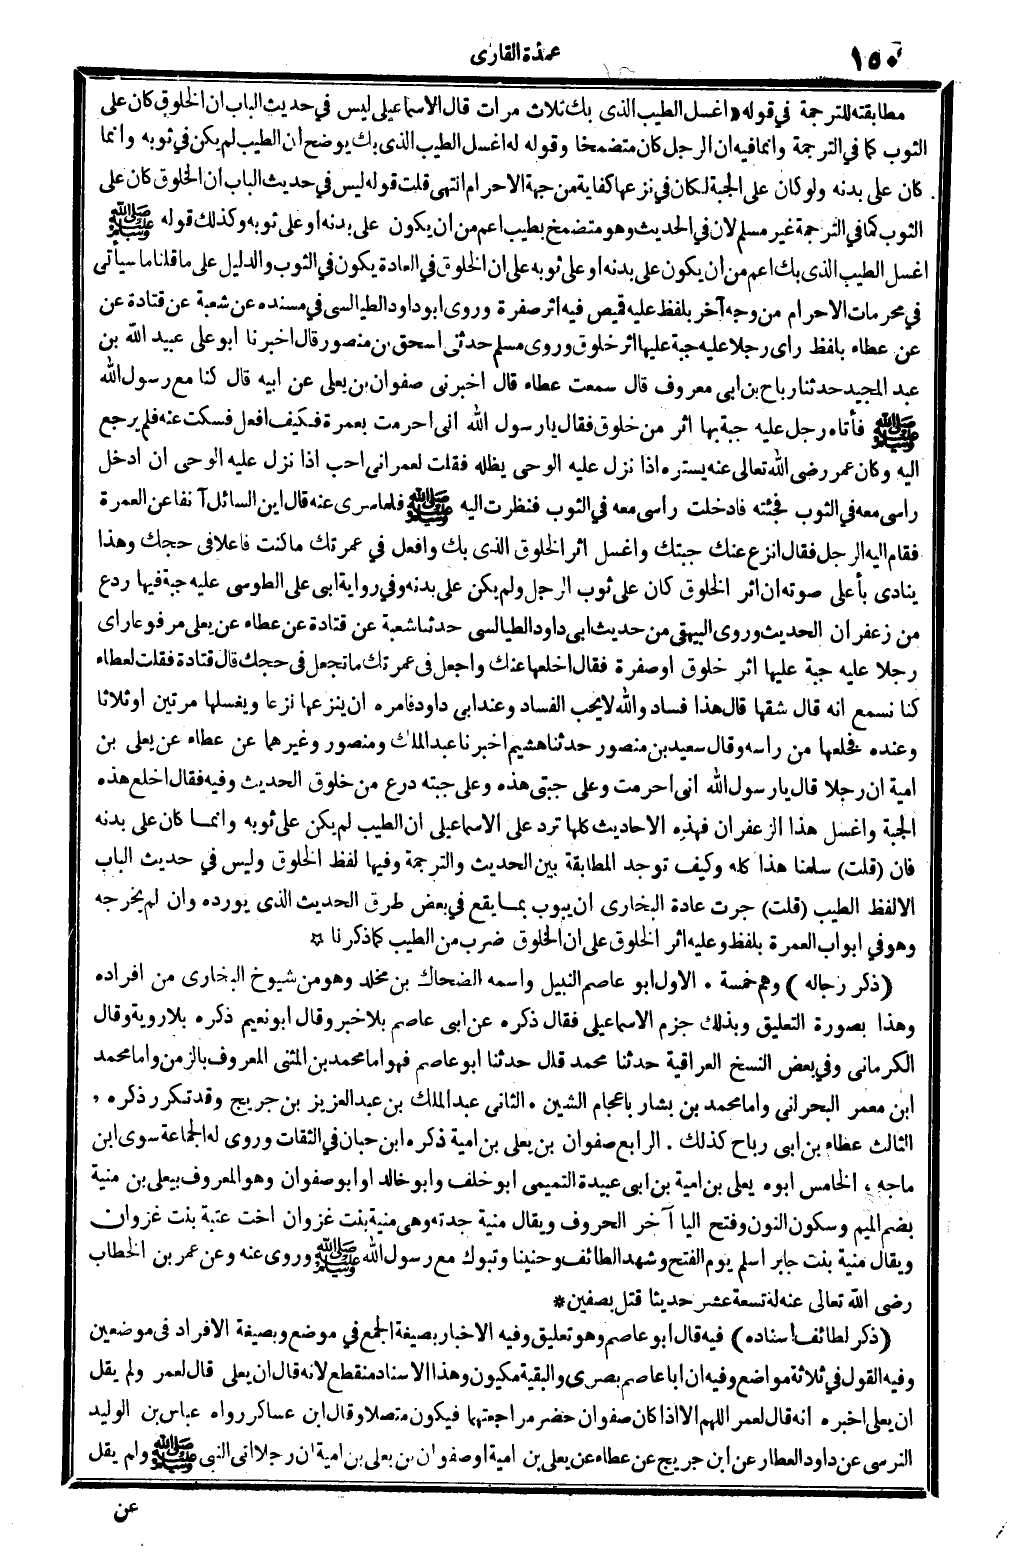 ١٥٠
عمدة القارى
مطابقته للترجمة في قوله «اغسل الطيب الذى بك ثلاث مرات قال الاسماعيلى ليس في حديث الباب ان الخلوق كان على
الثوب كما في الترجمة وانما فيه ان الرجل كان متضمخا وقوله له اغسل الطيب الذى بك يوضح ان الطيب لم يكن في ثوبه وانما
كان على بدنه ولو كان على الجبة لكان في نزعها كفاية من جهة الاحرام انتهى قلت قوله ليس في حديث الباب ان الخلوق كان على
الثوب كما في الترجمة غير مسلم لان في الحديث وهو متضمخ بطيب اعم من ان يكون على بدنه او على ثوبه وكذلك قوله ﷺ
اغسل الطيب الذى بك اعم من ان يكون على بدنه او على ثوبه على ان الخلوق في العادة يكون في الثوب والدليل على ما قلنا ما سيأتى
في محرمات الاحرام من وجه آخر بلفظ عليه قميص فيه اثر صفرة وروى ابو داود الطيالسى في مسنده عن شعبة عن قتادة عن
عن عطاء بلفظ راى رجلا عليه جبة عليها اثر خلوق وروى مسلم حدثنى اسحق بن منصور قال اخبرنا ابو على عبيد الله بن
عبد المجيد حدثنا رباح بن ابى معروف قال سمعت عطاء قال اخبرنى صفوان بن يعلى عن ابيه قال كنا مع رسول الله
ﷺ فأتاه رجل عليه جبة بها اثر من خلوق فقال يا رسول الله انى احرمت بعمرة فكيف افعل فسكت عنه فلم يرجع
اليه وكان عمر رضى الله تعالى عنه يستره اذا نزل عليه الوحى يظله فقلت لعمر انى احب اذا نزل عليه الوحى ان ادخل
راسى معه في الثوب فجئته فادخلت رأسى معه في الثوب فنظرت اليه ﷺ فلما سرى عنه قال اين السائل آنفا عن العمرة
فقام اليه الرجل فقال انزع عنك جبتك واغسل اثر الخلوق الذى بك وافعل في عمرتك ما كنت فاعلا في حجك وهذا
ينادى بأعلى صوته ان اثر الخلوق كان على ثوب الرجل ولم يكن على بدنه وفي رواية ابى على الطوسى عليه جبة فيها ردع
من زعفران الحديث وروى البيهقى من حديث ابى داود الطيالسى حدثنا شعبة عن قتادة عن عطاء عن يعلى مرفوعا راى
رجلا عليه جبة عليها اثر خلوق او صفرة فقال اخلعها عنك واجعل في عمرتك ما تجعل في حجك قال قتادة فقلت لعطاء
كنا نسمع انه قال شقها قال هذا فساد والله لا يحب الفساد وعند ابى داود فامره ان ينزعها نزعا ويغسلها مرتين او ثلاثا
وعنده فخلعها من راسه وقال سعيد بن منصور حدثنا هشيم اخبرنا عبد الملك ومنصور وغيرهما عن عطاء عن يعلى بن
امية ان رجلا قال يا رسول الله انى احرمت وعلى جبتى هذه وعلى جبته درع من خلوق الحديث وفيه فقال اخلع هذه
الجبة واغسل هذا الزعفران فهذه الاحاديث كلها ترد على الاسماعيلى ان الطيب لم يكن على ثوبه وانما كان على بدنه
فان (قلت) سلمنا هذا كله وكيف توجد المطابقة بين الحديث والترجمة وفيها لفظ الخلوق وليس في حديث الباب
الا لفظ الطيب (قلت) جرت عادة البخارى ان يبوب بما يقع في بعض طرق الحديث الذى يورده وان لم يخرجه
وهو في ابواب العمرة بلفظ وعليه اثر الخلوق على ان الخلوق ضرب من الطيب كما ذكرنا ☆
(ذكر رجاله) وهم خمسة . الاول ابو عاصم النبيل واسمه الضحاك بن مخلد وهو من شيوخ البخارى من افراده
وهذا بصورة التعليق وبذلك جزم الاسماعيلى فقال ذكره عن ابى عاصم بلا خبر وقال ابو نعيم ذكره بلا روية وقال
الكرمانى وفي بعض النسخ العراقية حدثنا محمد قال حدثنا ابو عاصم فهو اما محمد بن المثنى المعروف بالزمن واما محمد
ابن معمر البحرانى واما محمد بن بشار باعجام الشين . الثانى عبد الملك بن عبد العزيز بن جريج وقد تكرر ذكره ,
الثالث عطاء بن ابى رباح كذلك . الرابع صفوان بن يعلى بن امية ذكره ابن حبان في الثقات وروى له الجماعة سوى ابن
ماجه ، الخامس ابوه يعلى بن امية بن ابى عبيدة التميمى ابو خلف وابو خالد او ابو صفوان وهو المعروف بيعلى بن منية
بضم الميم وسكون النون وفتح اليا آخر الحروف ويقال منية جدته وهى منية بنت غزوان اخت عتبة بنت غزوان
ويقال منية بنت جابر اسلم يوم الفتح وشهد الطائف وحنينا وتبوك مع رسول الله ﷺ وروى عنه وعن عمر بن الخطاب
رضى الله تعالى عنه له تسعة عشر حديثا قتل بصفين *
(ذكر لطائف اسناده) فيه قال ابو عاصم وهو تعليق وفيه الاخبار بصيغة الجمع في موضع وبصيغة الافراد في موضعين
وفيه القول في ثلاثة مواضع وفيه ان ابا عاصم بصرى والبقية مكيون وهذا الاسناد منقطع لانه قال ان يعلى قال لعمر ولم يقل
ان يعلى اخبره انه قال لعمر اللهم الا اذا كان صفوان حضر مراجعتهما فيكون متصلا وقال ابن عساكر رواه عباس بن الوليد
النرسى عن داود العطار عن ابن جريج عن عطاء عن يعلى بن امية او صفوان بن يعلى بن امية ان رجلا اتى النبى ﷺ ولم يقل
عن